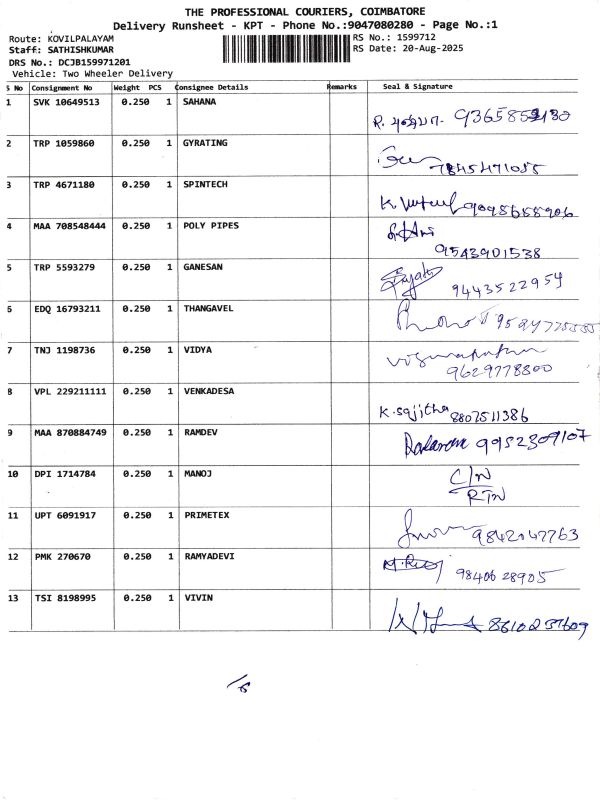 THE PROFESSIONAL COURIERS, COIMBATORE
Delivery Runsheet - KPT - Phone No.:9047080280 - Page No.:1
Route: KOVILPALAYAM RS No.: 1599712
Staff: SATHISHKUMAR RS Date: 20-Aug-2025
DRS No.: DCJB159971201
Vehicle: Two Wheeler Delivery
S No Consignment No Weight PCS Consignee Details Remarks Seal & Signature
1 SVK 10649513 0.250 1 SAHANA
2 TRP 1059860 0.250 1 GYRATING
7845471055
3 TRP 4671180 0.250 1 SPINTECH
9098658906
4 MAA 708548444 0.250 1 POLY PIPES
9543901538
5 TRP 5593279 0.250 1 GANESAN
9443522959
6 EDQ 16793211 0.250 1 THANGAVEL
7 TNJ 1198736 0.250 1 VIDYA
9629778800
8 VPL 229211111 0.250 1 VENKADESA
K. Sajitha 8807511386
9 MAA 870884749 0.250 1 RAMDEV
9952309107
10 DPI 1714784 0.250 1 MANOJ
C/N
RTN
11 UPT 6091917 0.250 1 PRIMETEX
9842047763
12 PMK 270670 0.250 1 RAMYADEVI
9840628905
13 TSI 8198995 0.250 1 VIVIN
8610237609